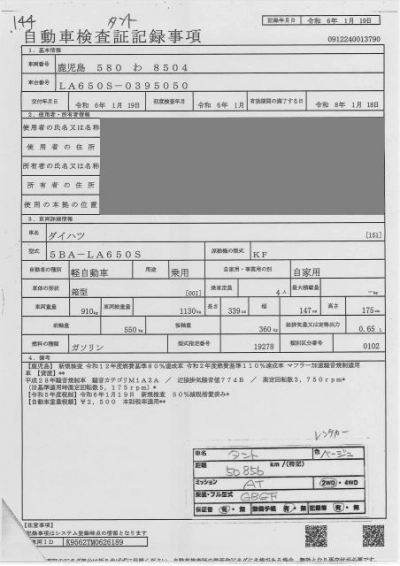 144
タント
記録年月日 令和 6年 1月 19日
自動車検査証記録事項
0912240013790
1. 基本情報
車両番号 鹿児島 580 わ 8504
車台番号 LA650S-0395050
交付年月日 令和 6年 1月 19日 初度検査年月 令和 6年 1月 有効期間の満了する日 令和 8年 1月 18日
2. 使用者・所有者情報
使用者の氏名又は名称
使用者の住所
所有者の氏名又は名称
所有者の住所
使用の本拠の位置
3. 車両詳細情報
車名 ダイハツ [151]
型式 5BA-LA650S 原動機の型式 KF
自動車の種別 軽自動車 用途 乗用 自家用・事業用の別 自家用
車体の形状 箱型 [001] 乗車定員 4人 最大積載量 -kg
車両重量 910kg 車両総重量 1130kg 長さ 339cm 幅 147cm 高さ 175cm
前軸重 550kg 後軸重 360kg 総排気量又は定格出力 0.65 L
燃料の種類 ガソリン 型式指定番号 19278 類別区分番号 0102
4. 備考
【鹿児島】 新規検査 令和12年度燃費基準80%達成車 令和2年度燃費基準110%達成車 マフラー加速騒音規制適用
車 【受渡】**
平成28年騒音規制車 騒音カテゴリM1A2A / 近接排気騒音値77dB / 測定回転数3,750rpm*
(旧基準適用時測定回転数5,175rpm)*
【令和5年度税制】 令和6年1月19日 新規検査 50%減税措置済み*
【自動車重量税額】 ¥2,500 本則税率適用**
レンタカー
車名 タント 色 ベージュ
距離 50856 km/(特記)
ミッション AT 2WD・4WD
実装・フル型式 GBGF
保証書 有・無 整備手帳 有・無 記録簿 有・無
【注意事項】
記載事項はシステム登録時点の情報となります
K9562TM0626189